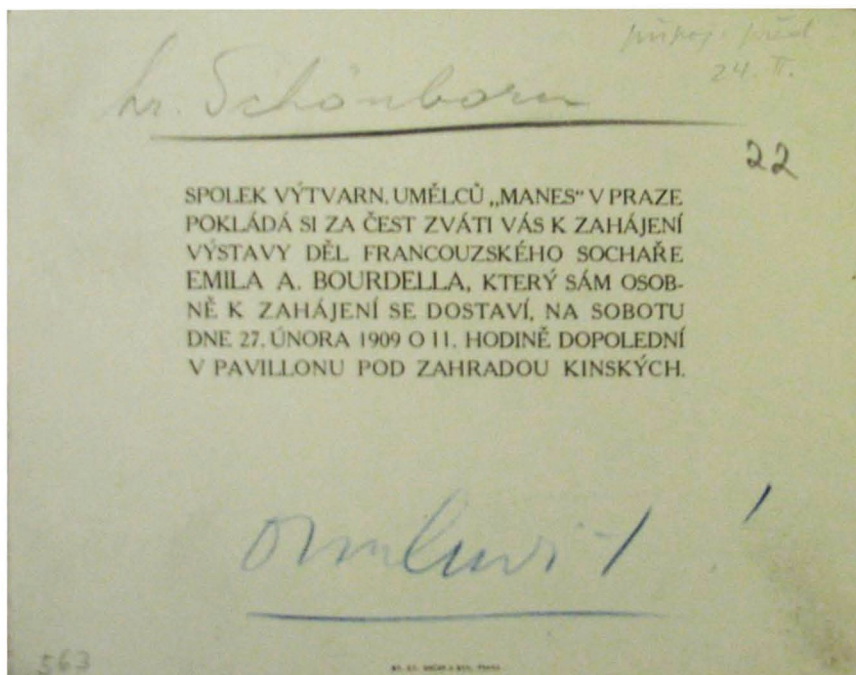 před
24. II.
hr. Schönborn
22
SPOLEK VÝTVARN. UMĚLCŮ „MANES“ V PRAZE
POKLÁDÁ SI ZA ČEST ZVÁTI VÁS K ZAHÁJENÍ
VÝSTAVY DĚL FRANCOUZSKÉHO SOCHAŘE
EMILA A. BOURDELLA, KTERÝ SÁM OSOB-
NĚ K ZAHÁJENÍ SE DOSTAVÍ, NA SOBOTU
DNE 27. ÚNORA 1909 O 11. HODINĚ DOPOLEDNÍ
V PAVILLONU POD ZAHRADOU KINSKÝCH.
omluvit!
563